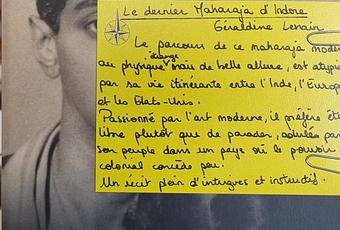 Le dernier Maharaja d'Indore
Géraldine Lenain
Le parcours de ce maharaja moder
étrange
au physique mais de belle allure, est atypi
par sa vie itinérante entre l'Inde, l'Europ
et les Etats-Unis.
Passionné par l'art moderne, il préfère êtr
libre plutôt que de parader, adulés par
son peuple dans un pays où le pouvoir
colonial concède peu.
Un récit plein d'intrigues et instructif.